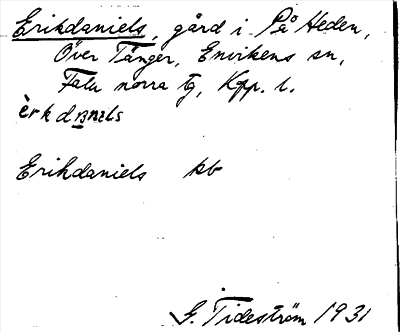 Erikdaniels, gård i På Heden,
Över Tänger, Envikens sn,
Falu norra tg, Kpp. l.
Erikdaniels kb
G. Tideström 1931